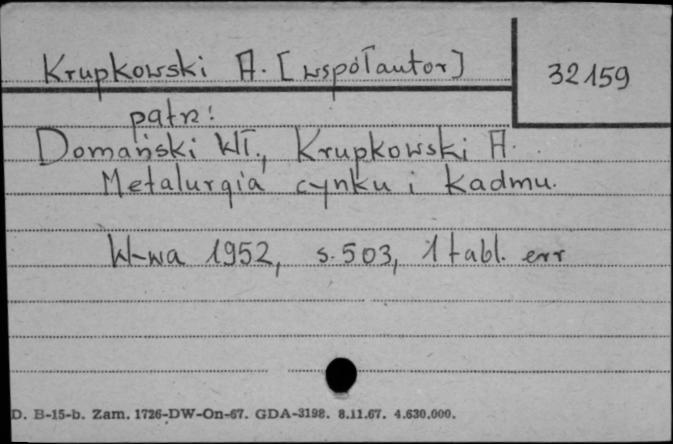 Krupkowski A. [współautor]
32159
patrz:
Domański Wł., Krupkowski A.
Metalurgia cynku i kadmu.
W-wa 1952, s. 503, 1 tabl. err
D. B-15-b. Zam. 1726-DW-On-67. GDA-3198. 8.11.67. 4.630.000.